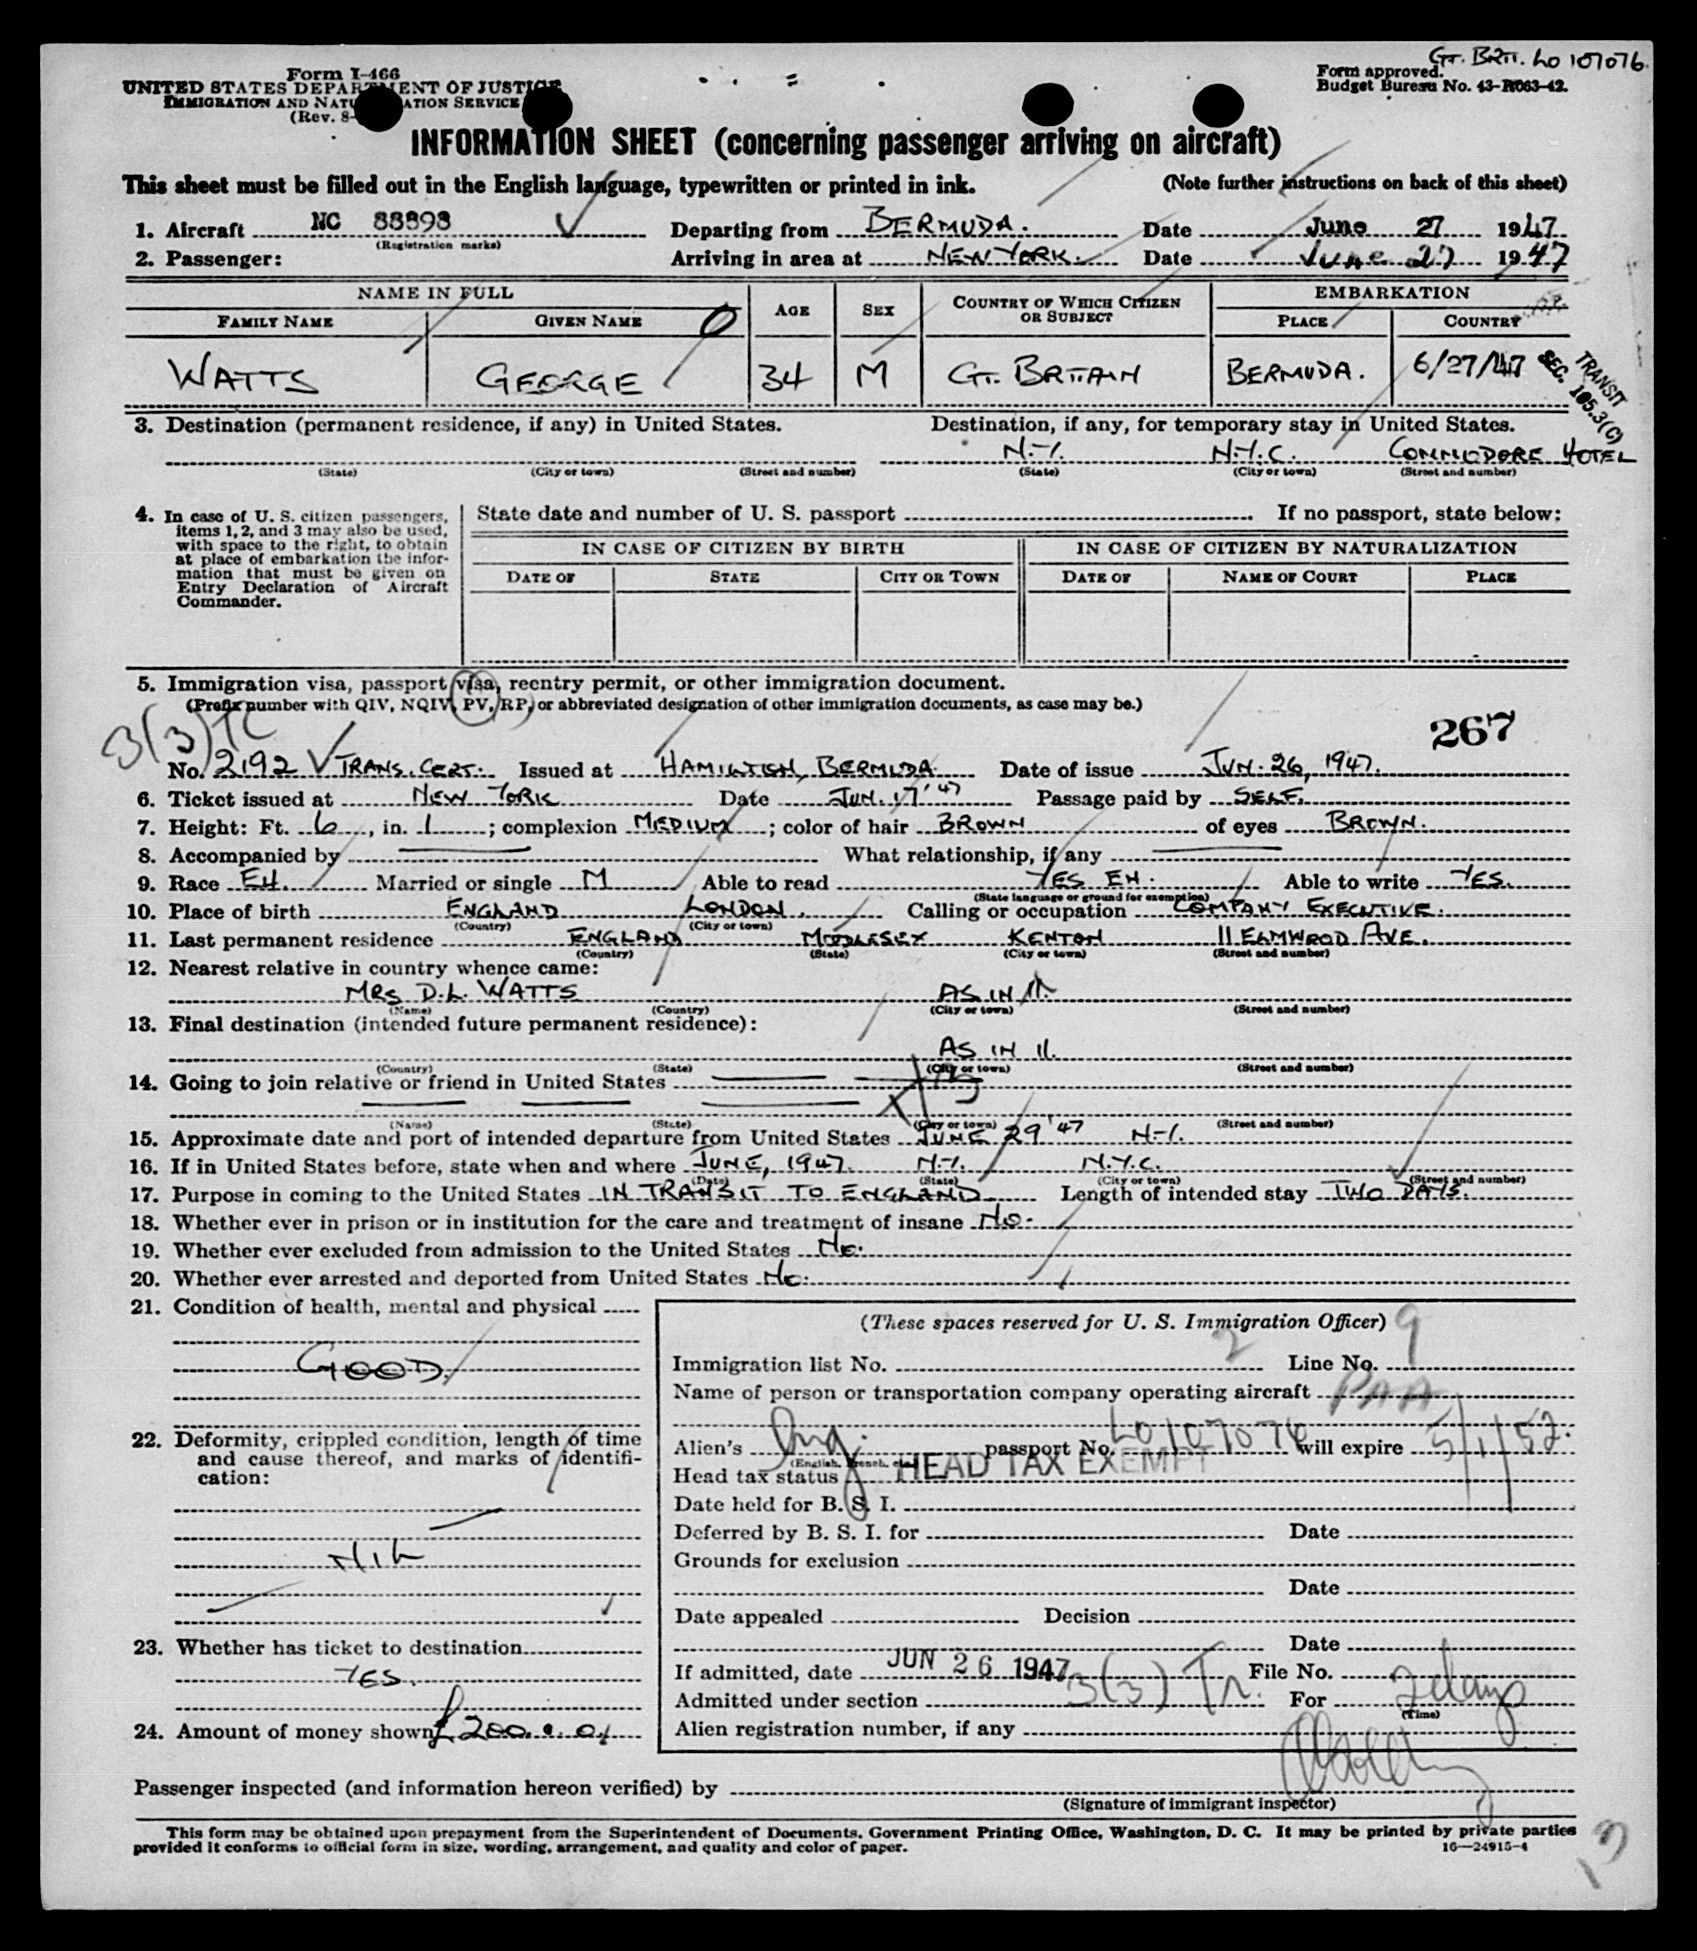 Gt. Brit. Lo 107076.
Form I-466
UNITED STATES DEPARTMENT OF JUSTICE
IMMIGRATION AND NATURALIZATION SERVICE
(Rev. 8-
Form approved.
Budget Bureau No. 43-R063-42.
INFORMATION SHEET (concerning passenger arriving on aircraft)
This sheet must be filled out in the English language, typewritten or printed in ink. (Note further instructions on back of this sheet)
1. Aircraft NC 88898 Departing from BERMUDA. Date June 27 1947
(Registration marks)
2. Passenger: Arriving in area at NEW YORK. Date June 27 1947
NAME IN FULL AGE SEX COUNTRY OF WHICH CITIZEN OR SUBJECT EMBARKATION
FAMILY NAME GIVEN NAME PLACE COUNTRY
WATTS GEORGE 34 M GT. BRITAIN BERMUDA. 6/27/47
TRANSIT
SEC. 105.3(C)
3. Destination (permanent residence, if any) in United States. Destination, if any, for temporary stay in United States.
N.Y. N.Y.C. COMMODORE HOTEL
(State) (City or town) (Street and number) (State) (City or town) (Street and number)
4. In case of U. S. citizen passengers, items 1, 2, and 3 may also be used, with space to the right, to obtain at place of embarkation the information that must be given on Entry Declaration of Aircraft Commander.
State date and number of U. S. passport If no passport, state below:
IN CASE OF CITIZEN BY BIRTH IN CASE OF CITIZEN BY NATURALIZATION
DATE OF STATE CITY OR TOWN DATE OF NAME OF COURT PLACE
5. Immigration visa, passport visa, reentry permit, or other immigration document.
(Prefix number with QIV, NQIV, PV, RP, or abbreviated designation of other immigration documents, as case may be.)
3(3)TC
267
No. 2192 TRANS. CERT. Issued at HAMILTON, BERMUDA Date of issue JUN. 26, 1947.
6. Ticket issued at NEW YORK Date JUN. 17 '47 Passage paid by SELF.
7. Height: Ft. 6, in. 1; complexion MEDIUM; color of hair BROWN of eyes BROWN.
8. Accompanied by What relationship, if any
9. Race EH. Married or single M Able to read YES EH. Able to write YES.
(State language or ground for exemption)
10. Place of birth ENGLAND LONDON. Calling or occupation COMPANY EXECUTIVE.
(Country) (City or town)
11. Last permanent residence ENGLAND MIDDLESEX KENTON 11 ELMWOOD AVE.
(Country) (State) (City or town) (Street and number)
12. Nearest relative in country whence came:
MRS D.L. WATTS AS IN 11.
(Name) (Country) (City or town) (Street and number)
13. Final destination (intended future permanent residence):
AS IN 11.
(Country) (State) (City or town) (Street and number)
14. Going to join relative or friend in United States
(Name) (State) (City or town) (Street and number)
15. Approximate date and port of intended departure from United States JUNE 29 '47 N.Y.
16. If in United States before, state when and where JUNE, 1947. N.Y. N.Y.C.
(Date) (State) (City or town) (Street and number)
17. Purpose in coming to the United States IN TRANSIT TO ENGLAND Length of intended stay TWO DAYS.
18. Whether ever in prison or in institution for the care and treatment of insane No.
19. Whether ever excluded from admission to the United States No.
20. Whether ever arrested and deported from United States No.
21. Condition of health, mental and physical
GOOD.
22. Deformity, crippled condition, length of time and cause thereof, and marks of identification:
NIL
23. Whether has ticket to destination
YES.
24. Amount of money shown £200.0.0
(These spaces reserved for U. S. Immigration Officer)
Immigration list No. 2 Line No. 9
Name of person or transportation company operating aircraft PAA
Alien's Eng. passport No. LO107076 will expire 5/1/52.
(English, French, etc.)
Head tax status HEAD TAX EXEMPT
Date held for B. S. I.
Deferred by B. S. I. for Date
Grounds for exclusion
Date
Date appealed Decision
Date
If admitted, date JUN 26 1947 File No.
Admitted under section 3(3) Tr. For 2 days
(Time)
Alien registration number, if any
Passenger inspected (and information hereon verified) by
(Signature of immigrant inspector)
This form may be obtained upon prepayment from the Superintendent of Documents, Government Printing Office, Washington, D. C. It may be printed by private parties
provided it conforms to official form in size, wording, arrangement, and quality and color of paper. 16—24915-4